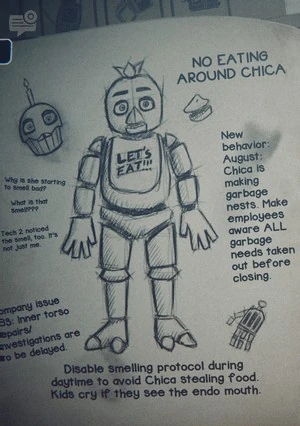 NO EATING
AROUND CHICA
LET'S
EAT!!!
New
behavior:
August:
Chica is
making
garbage
nests. Make
employees
aware ALL
garbage
needs taken
out before
closing.
Why is she starting
to smell bad?
What is that
smell????
Tech 2 noticed
the smell, too. It's
not just me.
ompany issue
Inner torso
epairs/
nvestigations are
to be delayed.
Disable smelling protocol during
daytime to avoid Chica stealing food.
Kids cry if they see the endo mouth.